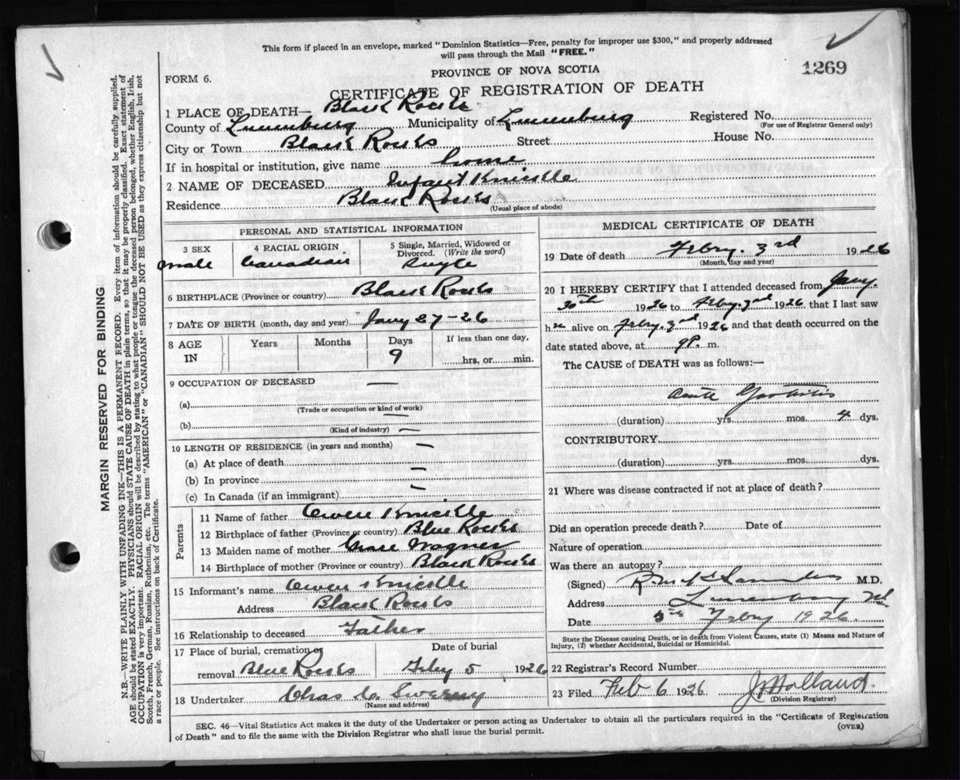 This form if placed in an envelope, marked "Dominion Statistics—Free, penalty for improper use $300," and properly addressed
will pass through the Mail "FREE."
FORM 6.
PROVINCE OF NOVA SCOTIA
1269
CERTIFICATE OF REGISTRATION OF DEATH
1 PLACE OF DEATH— Black Rocks
County of Lunenburg Municipality of Lunenburg Registered No.
(For use of Registrar General only)
City or Town Black Rocks Street House No.
If in hospital or institution, give name home
2 NAME OF DECEASED Infant Knickle
Residence Black Rocks
(Usual place of abode)
PERSONAL AND STATISTICAL INFORMATION
3 SEX 4 RACIAL ORIGIN 5 Single, Married, Widowed or
Divorced. (Write the word)
male Canadian Single
6 BIRTHPLACE (Province or country) Black Rocks
7 DATE OF BIRTH (month, day and year) Jany 27-26
8 AGE IN Years Months Days If less than one day,
9 hrs, or min.
9 OCCUPATION OF DECEASED —
(a)
(Trade or occupation or kind of work)
(b) —
(Kind of industry) —
10 LENGTH OF RESIDENCE (in years and months) —
(a) At place of death
(b) In province —
(c) In Canada (if an immigrant) —
Parents
11 Name of father Owen Knickle
12 Birthplace of father (Province or country) Blue Rocks
13 Maiden name of mother Grace Wagner
14 Birthplace of mother (Province or country) Black Rocks
15 Informant's name Owen Knickle
Address Black Rocks
16 Relationship to deceased Father
17 Place of burial, cremation or Date of burial
removal Blue Rocks Feby 5 1926
18 Undertaker Chas C Sweeny
(Name and address)
MEDICAL CERTIFICATE OF DEATH
19 Date of death Febry. 3rd 1926
(Month, day and year)
20 I HEREBY CERTIFY that I attended deceased from Jany.
30th 1926 to Febry. 3rd 1926 that I last saw
h alive on Febry. 3rd 1926 and that death occurred on the
date stated above, at 9P. m.
The CAUSE of DEATH was as follows:—
Acute Gastritis
(duration) yrs. mos. 4 dys.
CONTRIBUTORY
(duration) yrs. mos. dys.
21 Where was disease contracted if not at place of death?
Did an operation precede death? Date of
Nature of operation
Was there an autopsy?
(Signed) Saunders M.D.
Address Lunenburg
Date 5th Febry 1926.
State the Disease causing Death, or in death from Violent Causes, state (1) Means and Nature of
Injury, (2) whether Accidental, Suicidal or Homicidal.
22 Registrar's Record Number
23 Filed Feb 6 1926 Holland.
(Division Registrar)
SEC. 46—Vital Statistics Act makes it the duty of the Undertaker or person acting as Undertaker to obtain all the particulars required in the "Certificate of Registration
of Death" and to file the same with the Division Registrar who shall issue the burial permit.
(OVER)
MARGIN RESERVED FOR BINDING
N.B.—WRITE PLAINLY WITH UNFADING INK—THIS IS A PERMANENT RECORD. Every item of information should be carefully supplied.
AGE should be stated EXACTLY. PHYSICIANS should STATE CAUSE OF DEATH in plain terms, so that it may be properly classified. Exact statement of
OCCUPATION is very important. RACIAL ORIGIN will be described by stating to what people or tongue the deceased person belonged, whether English, Irish,
Scotch, French, German, Russian, Ruthenian, etc. The terms "AMERICAN" or "CANADIAN" SHOULD NOT BE USED as they express citizenship but not
a race or people. See instructions on back of Certificate.